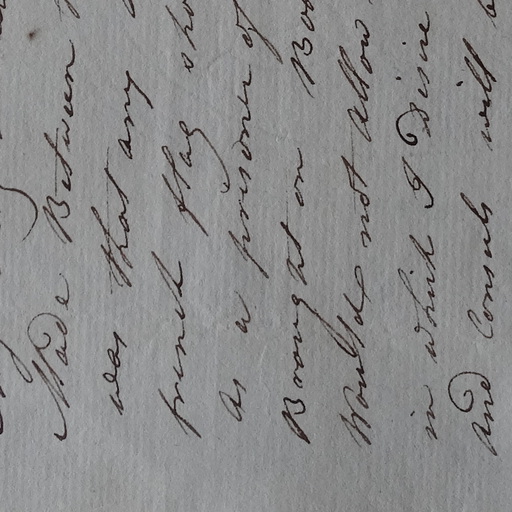 Made Between
was that any
french flag sho
as a prisoner of
Brought on Boa
Would not allow
in which I Desire
and Consuls will be